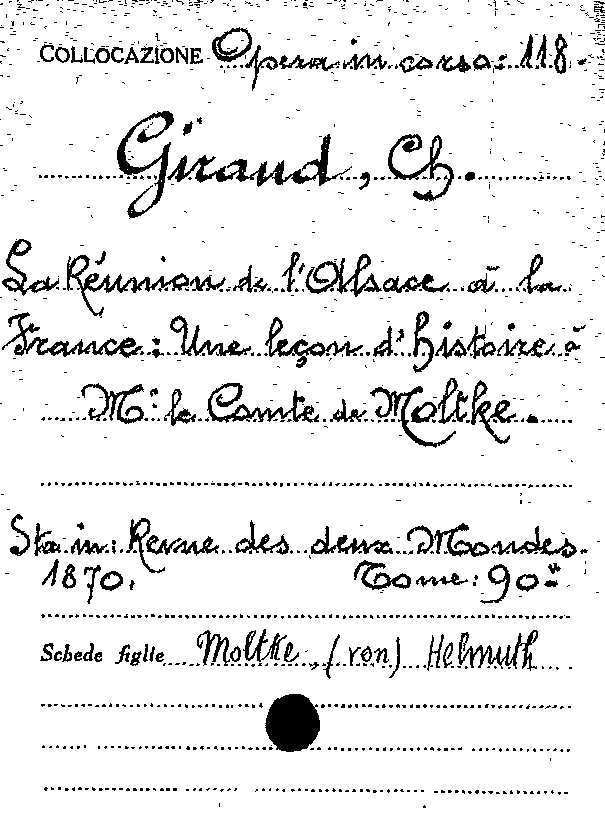 COLLOCAZIONE Opera in corso: 118.
Giraud, Ch.
La Réunion de l'Alsace à la
France: Une leçon d'histoire à
Mr. le Comte de Moltke.
Sta in: Revue des deux Mondes.
1870. Tome: 90º
Schede figlie Moltke, (von) Helmuth